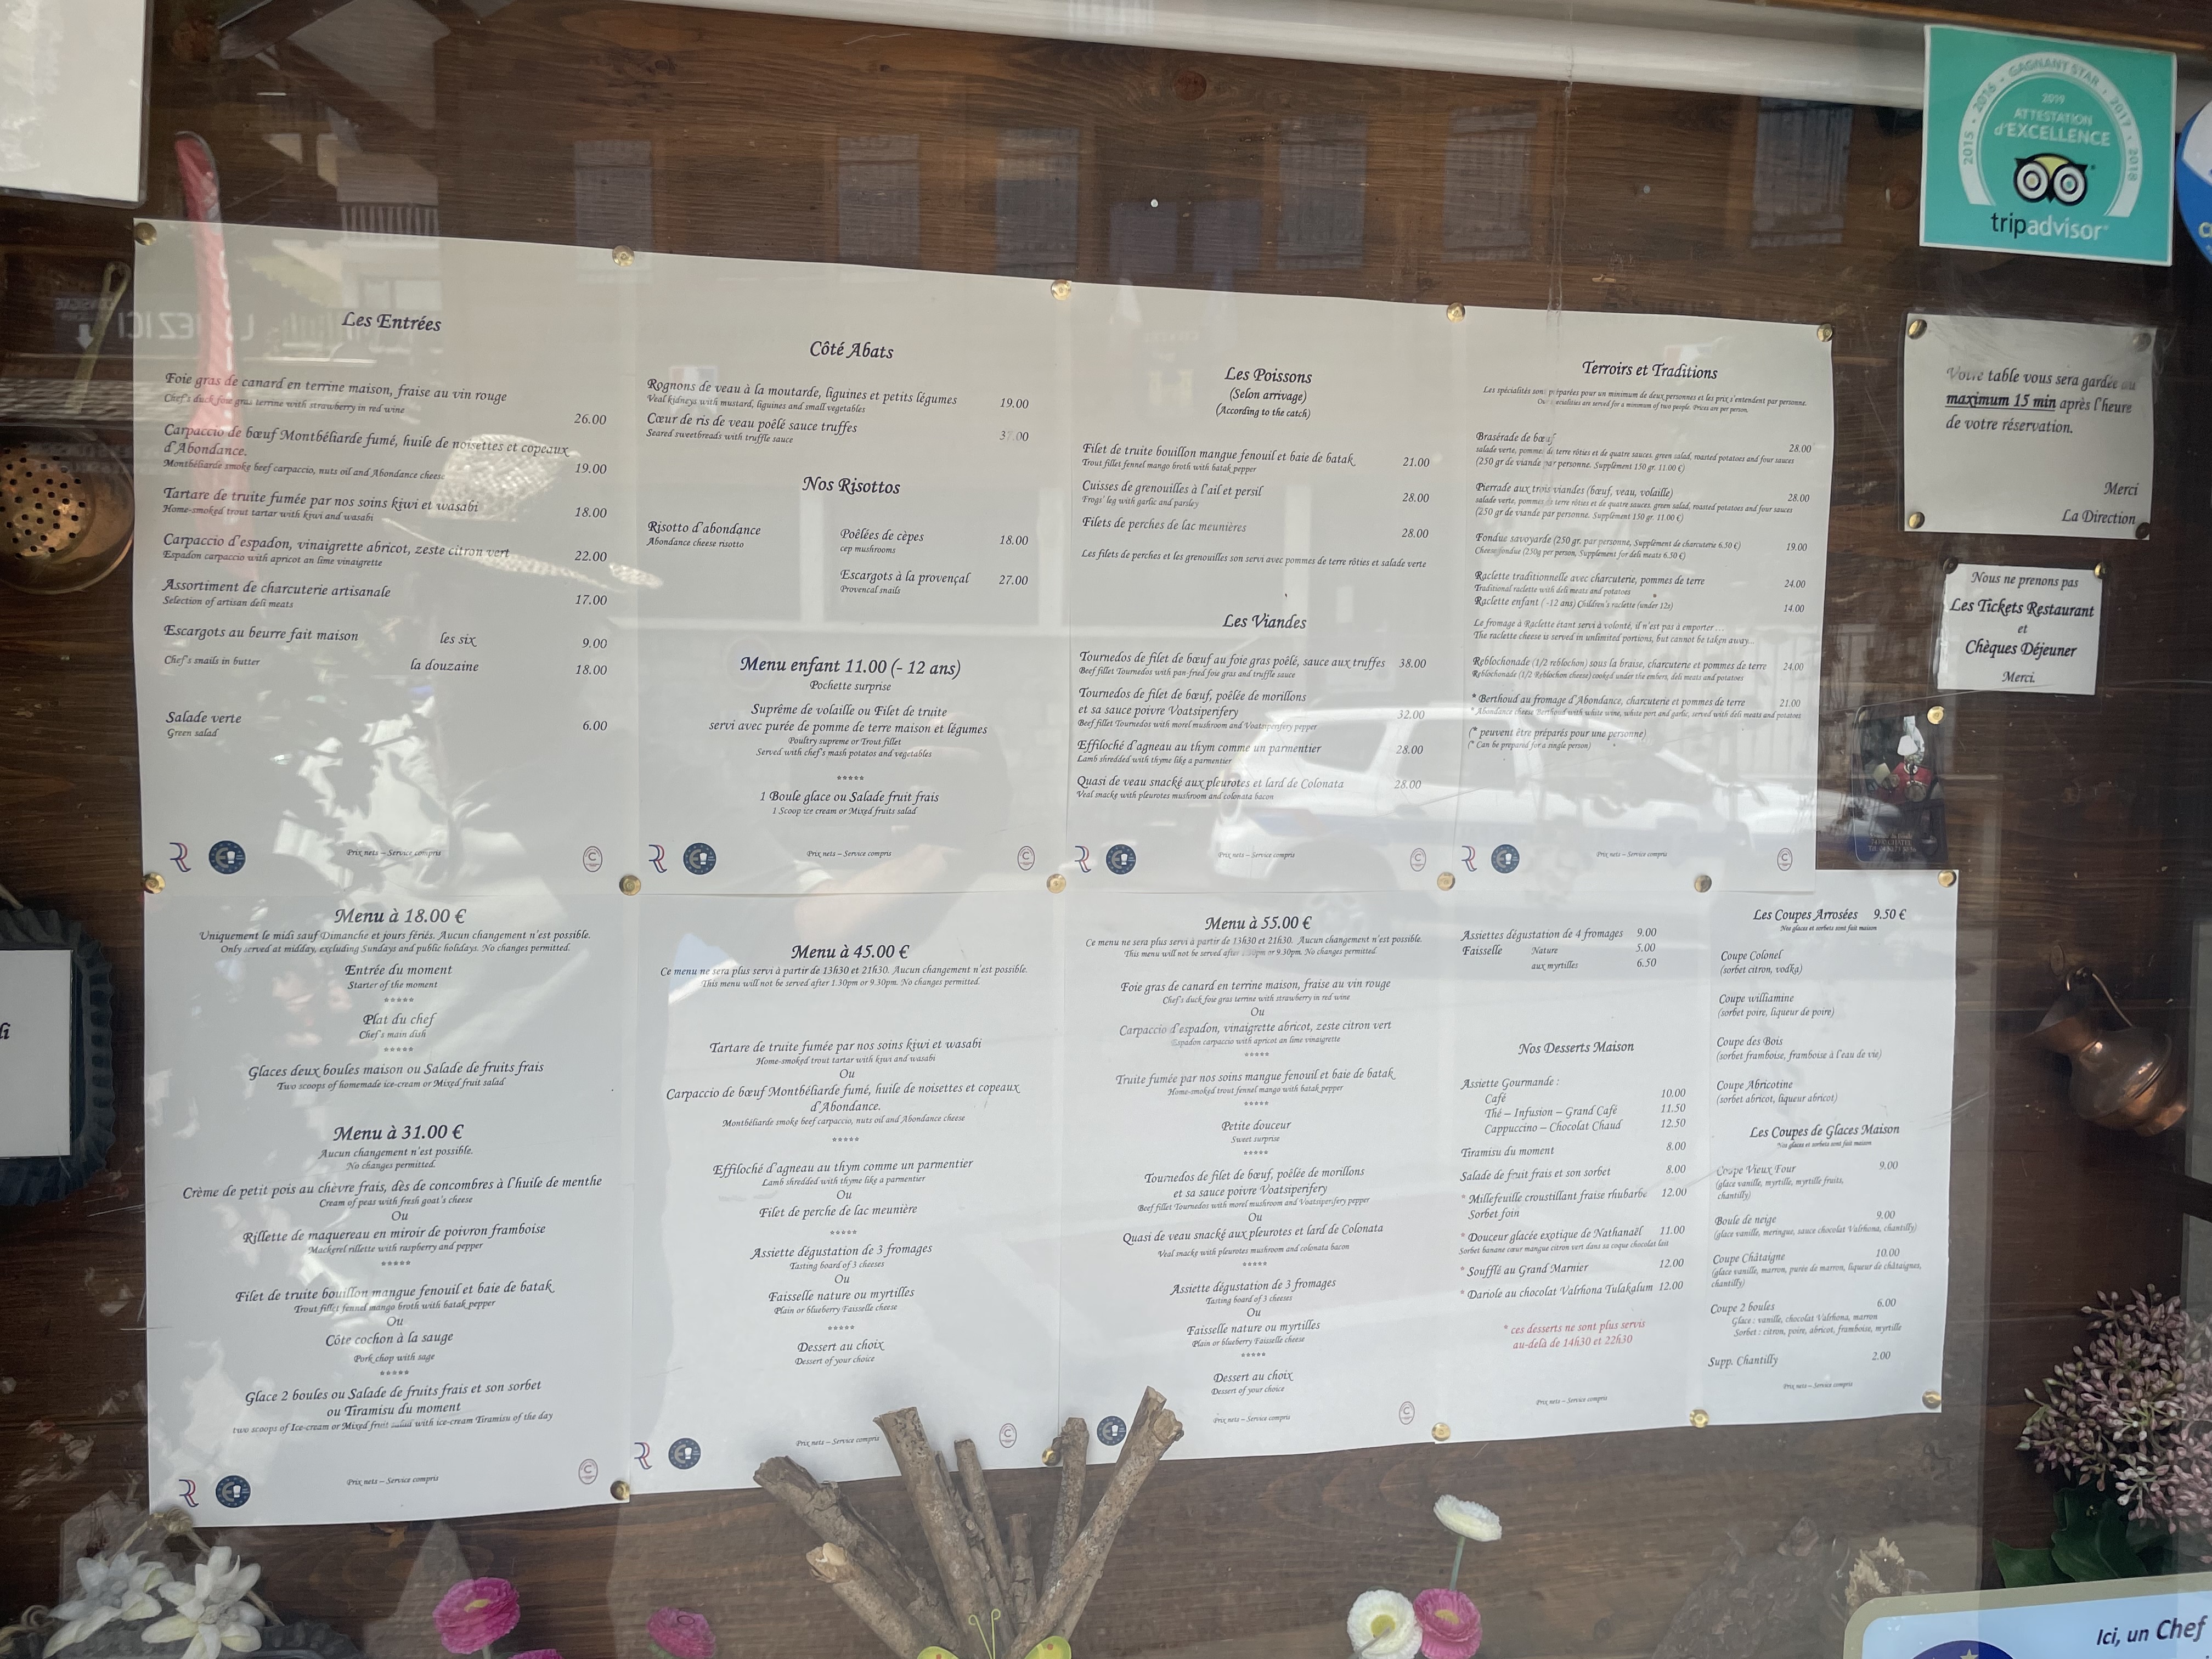 Les Entrées
Foie gras de canard en terrine maison, fraise au vin rouge
Chef's duck foie gras terrine with strawberry in red wine
26.00
Carpaccio de bœuf Montbéliarde fumé, huile de noisettes et copeaux
d'Abondance.
Montbéliarde smoke beef carpaccio, nuts oil and Abondance cheese
19.00
Tartare de truite fumée par nos soins kiwi et wasabi
Home-smoked trout tartar with kiwi and wasabi
18.00
Carpaccio d'espadon, vinaigrette abricot, zeste citron vert
Espadon carpaccio with apricot an lime vinaigrette
22.00
Assortiment de charcuterie artisanale
Selection of artisan deli meats
17.00
Escargots au beurre fait maison les six 9.00
Chef's snails in butter la douzaine 18.00
Salade verte
Green salad
6.00
Prix nets – Service compris
Côté Abats
Rognons de veau à la moutarde, liguines et petits légumes 19.00
Veal kidneys with mustard, liguines and small vegetables
Cœur de ris de veau poêlé sauce truffes
Seared sweetbreads with truffle sauce
Nos Risottos
Risotto d'abondance
Abondance cheese risotto
Poêlées de cèpes 18.00
cep mushrooms
Escargots à la provençal 27.00
Provencal snails
Menu enfant 11.00 (- 12 ans)
Pochette surprise
Suprême de volaille ou Filet de truite
servi avec purée de pomme de terre maison et légumes
Poultry supreme or Trout fillet
Served with chef's mash potatos and vegetables
*****
1 Boule glace ou Salade fruit frais
1 Scoop ice cream or Mixed fruits salad
Prix nets – Service compris
Les Poissons
(Selon arrivage)
(According to the catch)
Filet de truite bouillon mangue fenouil et baie de batak 21.00
Trout fillet fennel mango broth with batak pepper
Cuisses de grenouilles à l'ail et persil 28.00
Frogs' leg with garlic and parsley
Filets de perches de lac meunières 28.00
Les filets de perches et les grenouilles son servi avec pommes de terre rôties et salade verte
Les Viandes
Tournedos de filet de bœuf au foie gras poêlé, sauce aux truffes 38.00
Beef fillet Tournedos with pan-fried foie gras and truffle sauce
Tournedos de filet de bœuf, poêlée de morillons
et sa sauce poivre Voatsiperifery 32.00
Beef fillet Tournedos with morel mushroom and Voatsiperifery pepper
Effiloché d'agneau au thym comme un parmentier 28.00
Lamb shredded with thyme like a parmentier
Quasi de veau snacké aux pleurotes et lard de Colonata 28.00
Veal snacke with pleurotes mushroom and colonata bacon
Prix nets – Service compris
Terroirs et Traditions
Les spécialités sont préparées pour un minimum de deux personnes et les prix s'entendent par personne.
specialities are served for a minimum of two people. Prices are per person.
Brasérade de bœuf 28.00
salade verte, pommes de terre rôties et de quatre sauces. green salad, roasted potatoes and four sauces
(250 gr de viande par personne. Supplément 150 gr. 11.00 €)
Pierrade aux trois viandes (bœuf, veau, volaille) 28.00
salade verte, pommes de terre rôties et de quatre sauces. green salad, roasted potatoes and four sauces
(250 gr de viande par personne. Supplément 150 gr. 11.00 €)
Fondue savoyarde (250 gr. par personne, Supplément de charcuterie 6.50 €) 19.00
Cheese fondue (250g per person, Supplement for deli meats 6.50 €)
Raclette traditionnelle avec charcuterie, pommes de terre 24.00
Traditional raclette with deli meats and potatoes
Raclette enfant (-12 ans) Children's raclette (under 12s) 14.00
Le fromage à Raclette étant servi à volonté, il n'est pas à emporter…
The raclette cheese is served in unlimited portions, but cannot be taken away…
Reblochonade (1/2 reblochon) sous la braise, charcuterie et pommes de terre 24.00
Reblochonade (1/2 Reblochon cheese) cooked under the embers, deli meats and potatoes
* Berthoud au fromage d'Abondance, charcuterie et pommes de terre 21.00
* Abondance cheese Berthoud with white wine, white port and garlic, served with deli meats and potatoes
(* peuvent être préparés pour une personne)
(* Can be prepared for a single person)
Prix nets – Service compris
2015 • 2016 • GAGNANT STAR • 2017 • 2018
2019
ATTESTATION
d'EXCELLENCE
tripadvisor
Votre table vous sera gardée au
maximum 15 min après l'heure
de votre réservation.
Merci
La Direction
Nous ne prenons pas
Les Tickets Restaurant
et
Chèques Déjeuner
Merci.
Menu à 18.00 €
Uniquement le midi sauf Dimanche et jours fériés. Aucun changement n'est possible.
Only served at midday, excluding Sundays and public holidays. No changes permitted.
Entrée du moment
Starter of the moment
*****
Plat du chef
Chef's main dish
*****
Glaces deux boules maison ou Salade de fruits frais
Two scoops of homemade ice-cream or Mixed fruit salad
Menu à 31.00 €
Aucun changement n'est possible.
No changes permitted.
Crème de petit pois au chèvre frais, dès de concombres à l'huile de menthe
Cream of peas with fresh goat's cheese
Ou
Rillette de maquereau en miroir de poivron framboise
Mackerel rillette with raspberry and pepper
*****
Filet de truite bouillon mangue fenouil et baie de batak
Trout fillet fennel mango broth with batak pepper
Ou
Côte cochon à la sauge
Pork chop with sage
*****
Glace 2 boules ou Salade de fruits frais et son sorbet
ou Tiramisu du moment
two scoops of Ice-cream or Mixed fruit salad with ice-cream Tiramisu of the day
Prix nets – Service compris
Menu à 45.00 €
Ce menu ne sera plus servi à partir de 13h30 et 21h30. Aucun changement n'est possible.
This menu will not be served after 1.30pm or 9.30pm. No changes permitted.
Tartare de truite fumée par nos soins kiwi et wasabi
Home-smoked trout tartar with kiwi and wasabi
Ou
Carpaccio de bœuf Montbéliarde fumé, huile de noisettes et copeaux
d'Abondance.
Montbéliarde smoke beef carpaccio, nuts oil and Abondance cheese
*****
Effiloché d'agneau au thym comme un parmentier
Lamb shredded with thyme like a parmentier
Ou
Filet de perche de lac meunière
*****
Assiette dégustation de 3 fromages
Tasting board of 3 cheeses
Ou
Faisselle nature ou myrtilles
Plain or blueberry Faisselle cheese
*****
Dessert au choix
Dessert of your choice
Prix nets – Service compris
Menu à 55.00 €
Ce menu ne sera plus servi à partir de 13h30 et 21h30. Aucun changement n'est possible.
This menu will not be served after 1.30pm or 9.30pm. No changes permitted.
Foie gras de canard en terrine maison, fraise au vin rouge
Chef's duck foie gras terrine with strawberry in red wine
Ou
Carpaccio d'espadon, vinaigrette abricot, zeste citron vert
Espadon carpaccio with apricot an lime vinaigrette
*****
Truite fumée par nos soins mangue fenouil et baie de batak
Home-smoked trout fennel mango with batak pepper
*****
Petite douceur
Sweet surprise
*****
Tournedos de filet de bœuf, poêlée de morillons
et sa sauce poivre Voatsiperifery
Beef fillet Tournedos with morel mushroom and Voatsiperifery pepper
Ou
Quasi de veau snacké aux pleurotes et lard de Colonata
Veal snacke with pleurotes mushroom and colonata bacon
*****
Assiette dégustation de 3 fromages
Tasting board of 3 cheeses
Ou
Faisselle nature ou myrtilles
Plain or blueberry Faisselle cheese
*****
Dessert au choix
Dessert of your choice
Prix nets – Service compris
Assiettes dégustation de 4 fromages 9.00
Faisselle Nature 5.00
aux myrtilles 6.50
Nos Desserts Maison
Assiette Gourmande :
Café 10.00
Thé – Infusion – Grand Café 11.50
Cappuccino – Chocolat Chaud 12.50
Tiramisu du moment 8.00
Salade de fruit frais et son sorbet 8.00
* Millefeuille croustillant fraise rhubarbe 12.00
Sorbet foin
* Douceur glacée exotique de Nathanaël 11.00
Sorbet banane cœur mangue citron vert dans sa coque chocolat lait
* Soufflé au Grand Marnier 12.00
* Dariole au chocolat Valrhona Tulakalum 12.00
* ces desserts ne sont plus servis
au-delà de 14h30 et 22h30
Prix nets – Service compris
Les Coupes Arrosées 9.50 €
Nos glaces et sorbets sont fait maison
Coupe Colonel
(sorbet citron, vodka)
Coupe williamine
(sorbet poire, liqueur de poire)
Coupe des Bois
(sorbet framboise, framboise à l'eau de vie)
Coupe Abricotine
(sorbet abricot, liqueur abricot)
Les Coupes de Glaces Maison
Nos glaces et sorbets sont fait maison
Coupe Vieux Four 9.00
(glace vanille, myrtille, myrtille fruits,
chantilly)
Boule de neige 9.00
(glace vanille, meringue, sauce chocolat Valrhona, chantilly)
Coupe Châtaigne 10.00
(glace vanille, marron, purée de marron, liqueur de châtaignes,
chantilly)
Coupe 2 boules 6.00
Glace : vanille, chocolat Valrhona, marron
Sorbet : citron, poire, abricot, framboise, myrtille
Supp. Chantilly 2.00
Prix nets – Service compris
Ici, un Chef